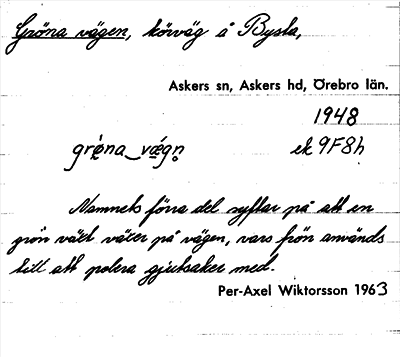 Gröna vägen, körväg å Bysta,
Askers sn, Askers hd, Örebro län.
1948
grö̀na_vǽgn̥ ek 9F8h
Namnets förra del syftar på att en
grön växt växer på vägen, vars frön används
till att polera gjutsaker med.
Per-Axel Wiktorsson 1963